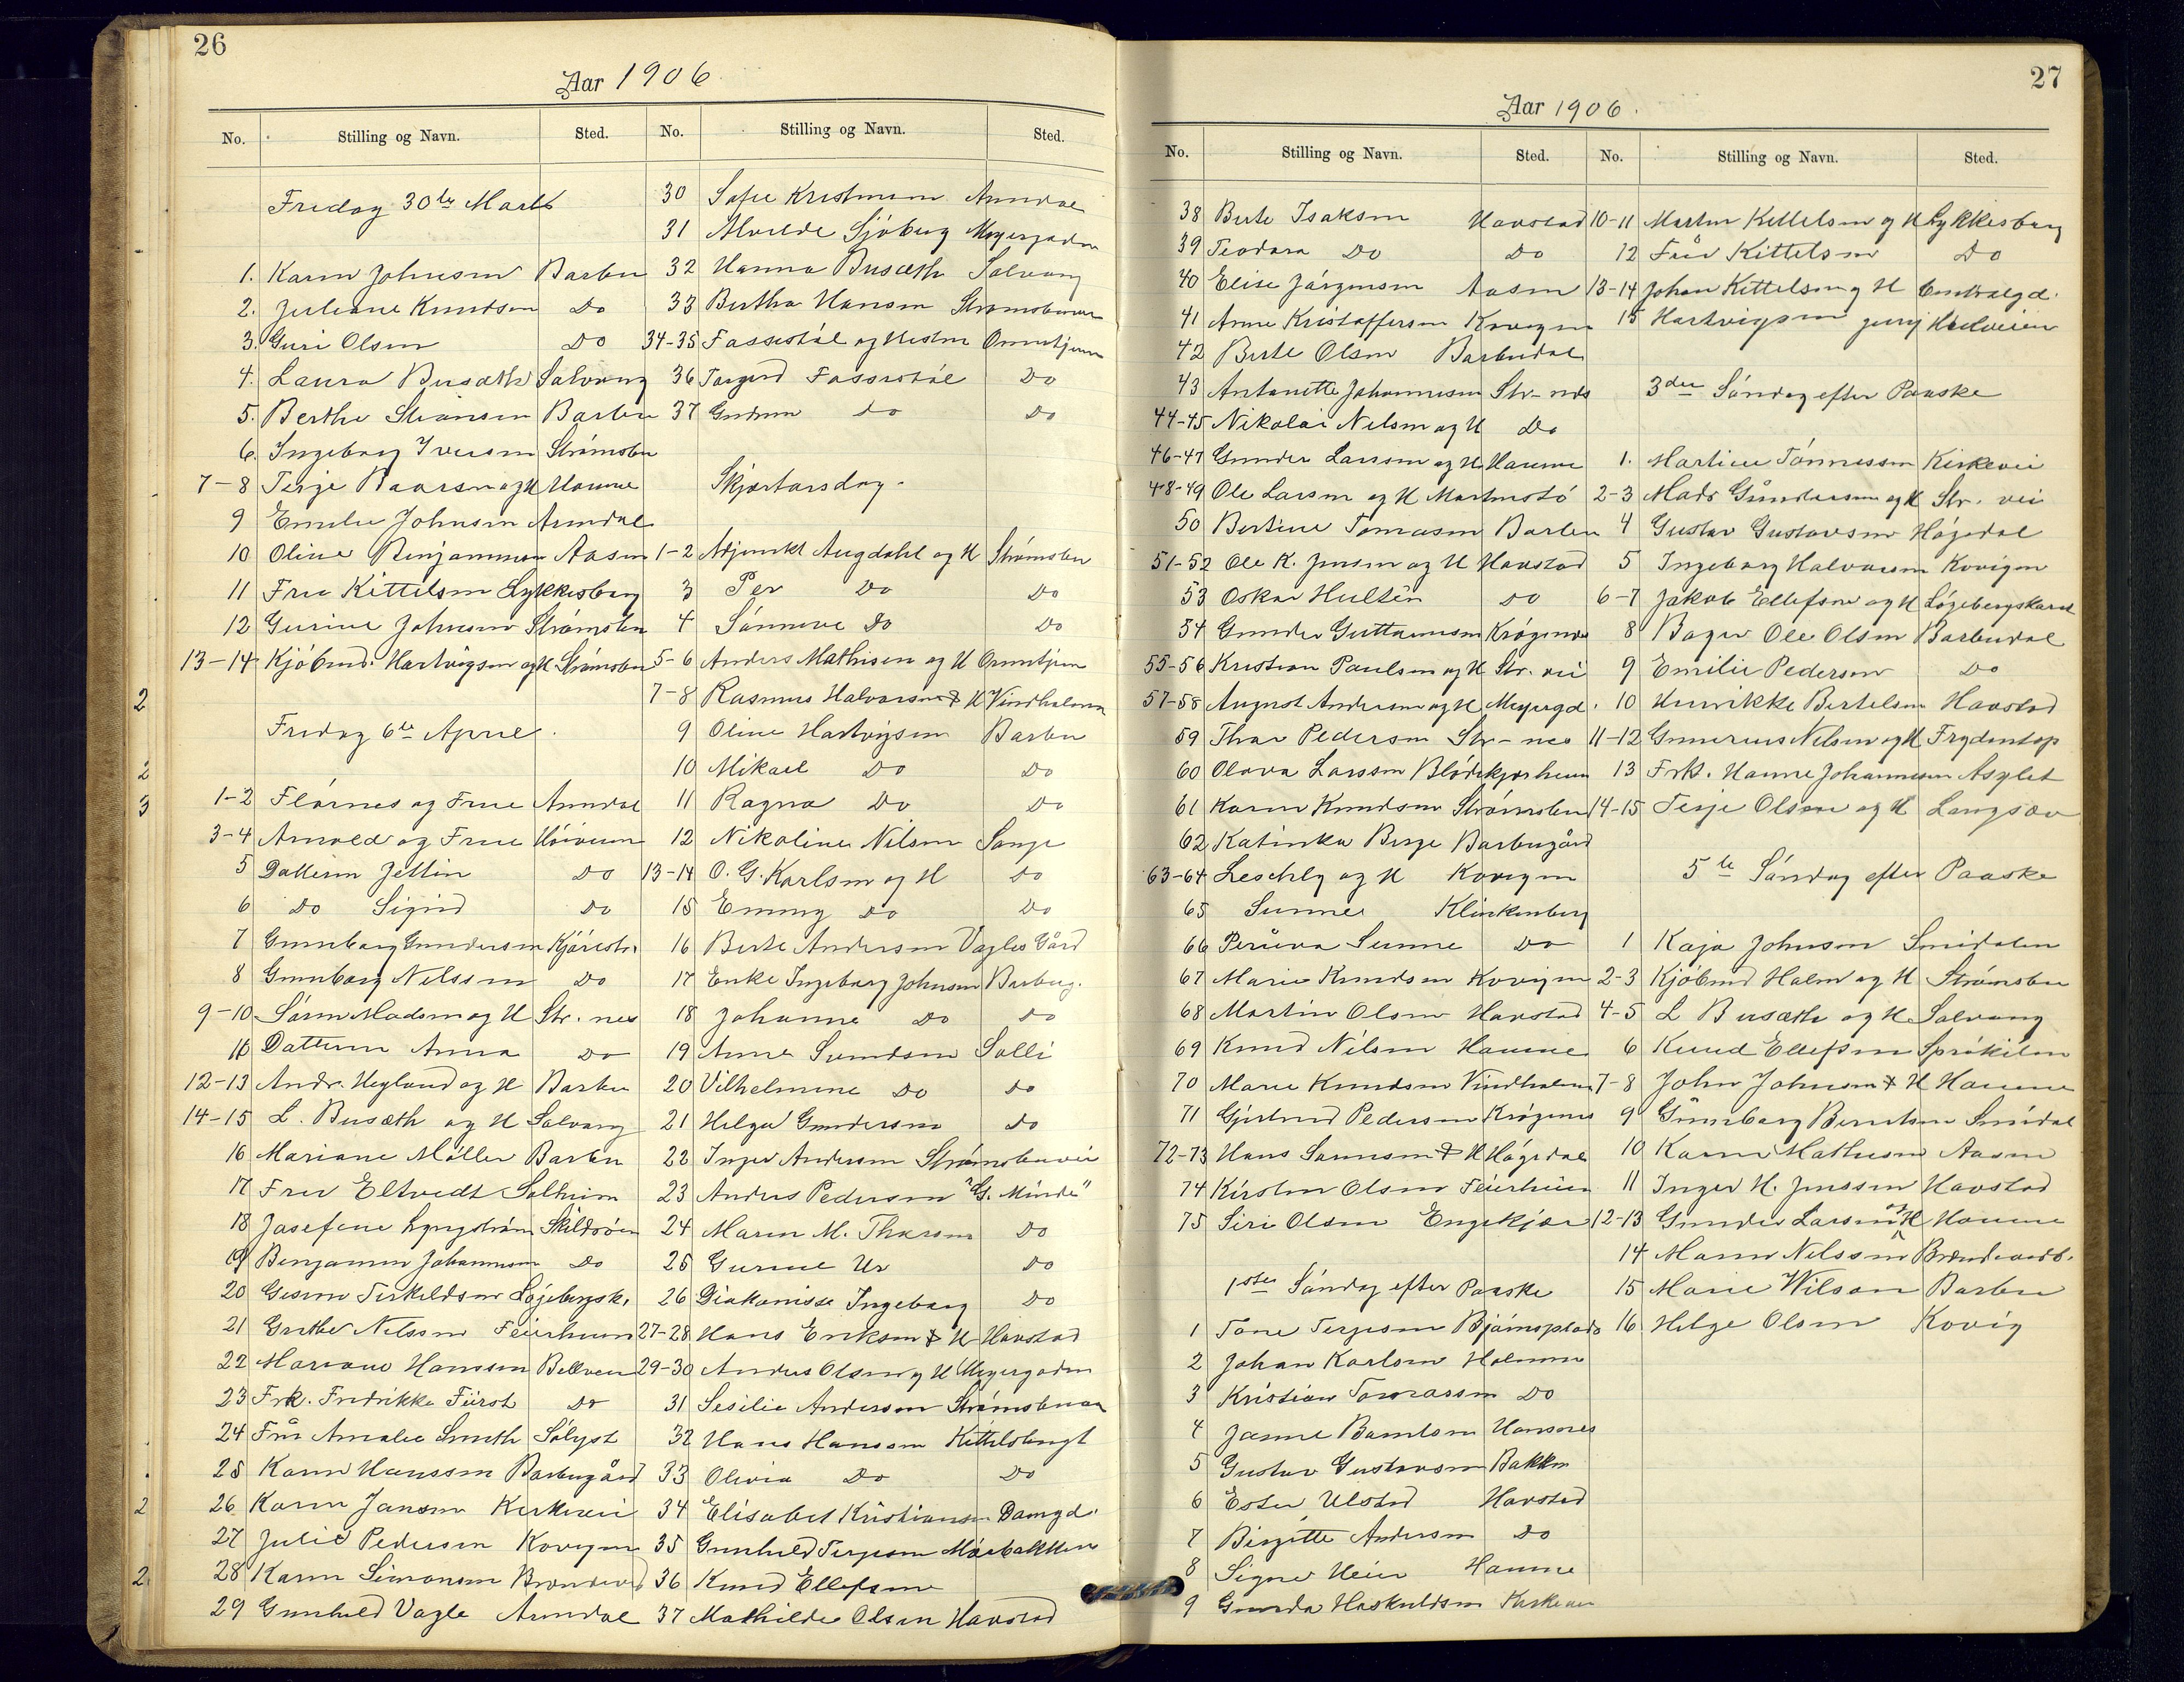 26
Aar 1906
No. Stilling og Navn. Sted.
Fredag 30te Marts
1. Karen Johnsen Barbu
2. Juliane Knudsen Do
3. Guri Olsen Do
4. Laura Busæth Solvang
5. Berthe Barbu
6. Ingeborg Iversen Strømsbu
7-8 Terje og H Havne
9 Emilie Johnsen Arendal
10 Oline Benjaminsen Aasen
11 Frue Kittelsen Lykkesborg
12 Gurine Johnsen Strømsbu
13-14 Kjöbmd. Hartvigsen og H Strømsbu
2
Fredag 6te April.
2
3
1-2 Flørnes og Frue Arendal
3-4 Arnold og Frue
5 Datteren Do
6 Do Sigrid Do
7 Gunborg Gundersen
8 Gunborg Nilssen Do
9-10 Sören Madsen og H Str. nes
11 Datteren Anna Do
12-13 Andr. Heglund og H Barbu
14-15 L. Busæth og H Solvang
16 Mariane Möller Barbu
17 Frue Eltvedt Solheim
18 Josefine
19 Benjamin Johannesen Do
20 Terkeldsen Løjebergsk.
21 Grethe Nilssen Feierheien
22 Mariane Hanssen
23 Frk. Fredrikke Fürst Do
24 Fru Amalie Smith Sölyst
25 Karen Hanssen Barbugård
2
26 Karen Jansen Kirkevei
27 Julie Pedersen Kovigen
2
28 Karen Simonsen
29 Gunhild Vagle Arendal
No. Stilling og Navn. Sted.
30 Sofie Kristensen Arendal
31 Alvilde Sjöberg Meyergaden
32 Hanna Busæth Solvang
33 Bertha Hansen Strømsbuveien
34-35 Fassestøl og Hustru
36 Torgerd Fassestøl Do
37 Gudrun Do Do
Skjærtorsdag.
1-2 Adjunkt Augdahl og H Strømsbu
3 Per Do Do
4 Sönneve Do Do
5-6 Anders Mathisen og H
7-8 Rasmus Halvorsen & H Vindholmen
9 Oline Hartvigsen Barbu
10 Mikael Do Do
11 Ragna Do Do
12 Nikoline Nilsen Songe
13-14 O. G. Karlsen og H Do
15 Emmy Do Do
16 Berte Andersen Vagles Gård
17 Enke Ingeborg Johnsen Barbug.
18 Johanne Do Do
19 Anne Svendsen Solli
20 Vilhelmine Do Do
21 Helga Gundersen Do
22 Inger Andersen Strømsbuvei
23 Anders Pedersen "G. Minde"
24 Maren M. Thorsen Do
25 Gurine Ur Do
26 Diakonisse Ingeborg Do
27-28 Hans Eriksen & H Havstad
29-30 Anders Olsen og H Meyergaden
31 Sesilie Andersen Strømsbuveien
32 Hans Hanssen
33 Olivia Do Do
34 Elisabet Kristiansen
35 Gunhild Terjesen
36 Knud Ellefsen
37 Mathilde Olsen Havstad
27
Aar 1906.
No. Stilling og Navn. Sted.
38 Berte Isaksen Havstad
39 Teodora Do Do
40 Elise Jörgensen Aasen
41 Anne Kristoffersen Kovigen
42 Berte Olsen Barbudal
43 Antonette Johannesen Str-nes
44-45 Nikolai Nilsen og H Do
46-47 Gunder Larssen og H Havne
48-49 Ole Larsen og H
50 Bertine Tomasen Barbu
51-52 Ole K. Jensen og H Havstad
53 Oskar Hultén Do
54 Gunder Guttormsen Krøgenes
55-56 Kristian Paulsen og H Str. vei
57-58 August Andersen og H Meyergd.
59 Thor Pedersen Str-nes
60 Olava Larssen Blødekjærheien
61 Karen Knudsen Strømsbu
62 Katinka Berge Barbugård
63-64 Leschly og H Kovigen
65 Sunne Klinkenberg
66 Sunne Do
67 Marie Knudsen Kovigen
68 Martin Olsen Havstad
69 Knud Nilsen Havne
70 Marie Knudsen Vindholmen
71 Gjertrud Pedersen Krøgenes
72-73 Hans & H Högedal
74 Kirsten Olsen Feierheien
75 Siri Olsen Engekjær
1ste Söndag efter Paaske
1 Tone Terjesen Björnsplads
2 Johan Karlsen Holmen
3 Kristian Tomassen Do
4 Janne
5 Gustav Gustavsen Bakken
6 Ester Ulstad Havstad
7 Birgitte Andersen Do
8 Signe Heier Havne
9 Gunda Haskuldsen
No. Stilling og Navn. Sted.
10-11 Martin Kittelsen og H Lykkesborg
12 Fru Kittelsen Do
13-14 Johan Kittelsen og H Centralgd.
15 Hartvigsen
3die Söndag efter Paaske
1. Martine Tönnessen Kirkevei
2-3 Mads Gundersen og H Str. vei
4 Gustav Gustavsen Högedal
5 Ingeborg Halvorsen Kovigen
6-7 Jakob Ellefsen og H
8 Bager Ole Olsen Barbudal
9 Emilie Pedersen Do
10 Henrikke Bertelsen Havstad
11-12 Gunerius Nilsen og H
13 Frk. Hanne Johannesen Asylet
14-15 Terje Olsen og H Langsæv
5te Söndag efter Paaske
1 Kaja Johnson Smidalen
2-3 Kjöbmd Holm og H Strømsbu
4-5 L Busæth og H Solvang
6 Knud Ellefsen
7-8 John Johnsen & H Havne
9 Gunborg Berntsen Smidal
10 Karen Mathisen Aasen
11 Inger H. Jenssen Havstad
12-13 Gunder Larsen og H Havne
14 Maren Nilssen
15 Marie Wilson Barbu
16 Helge Olsen Kovig